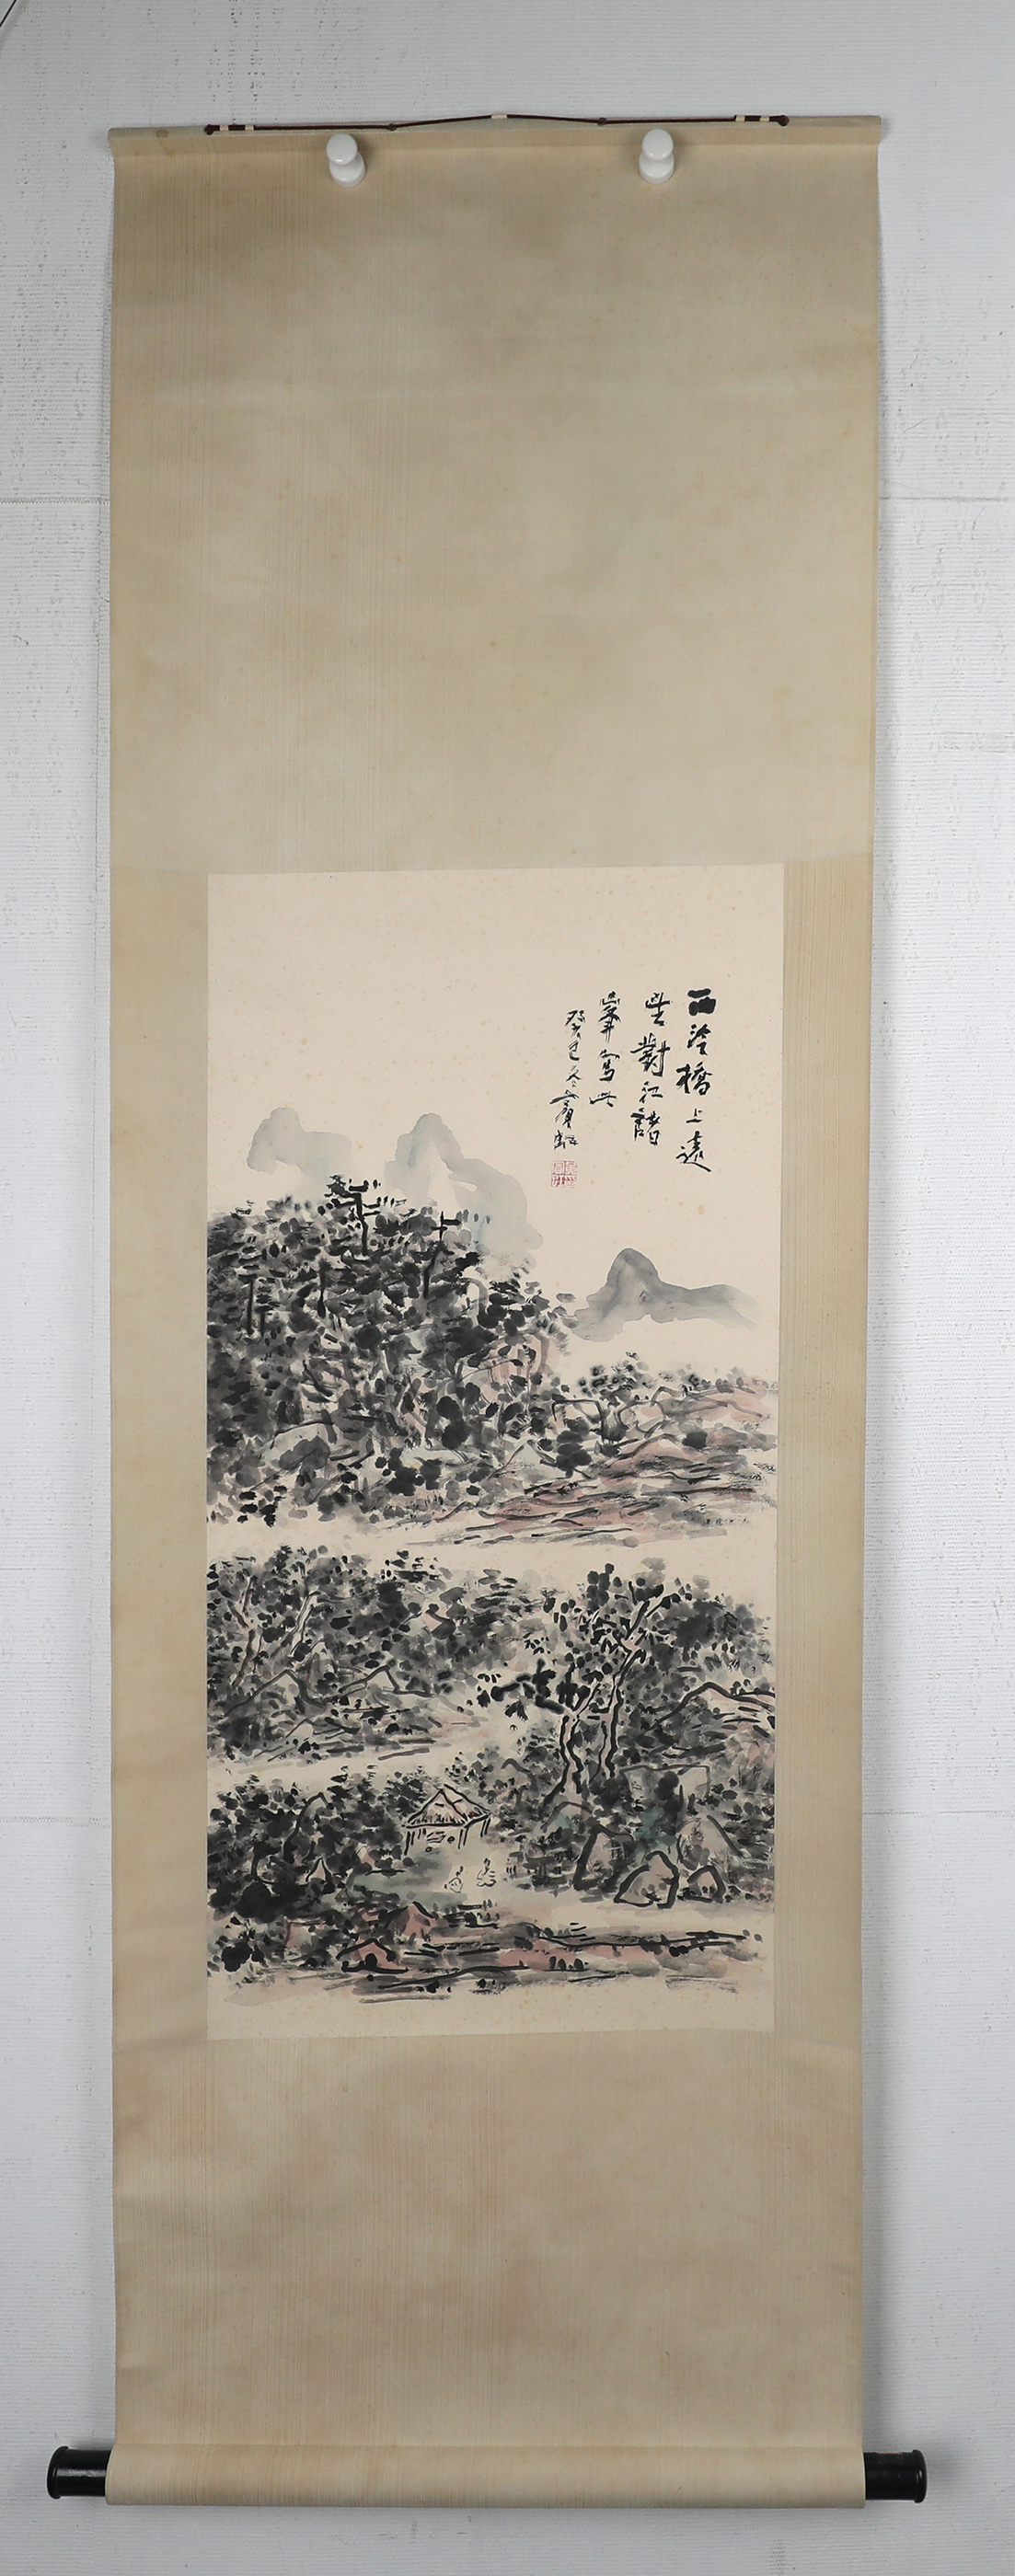 西泠橋上遠
坐對江諸
峯寫此
癸巳冬賓虹